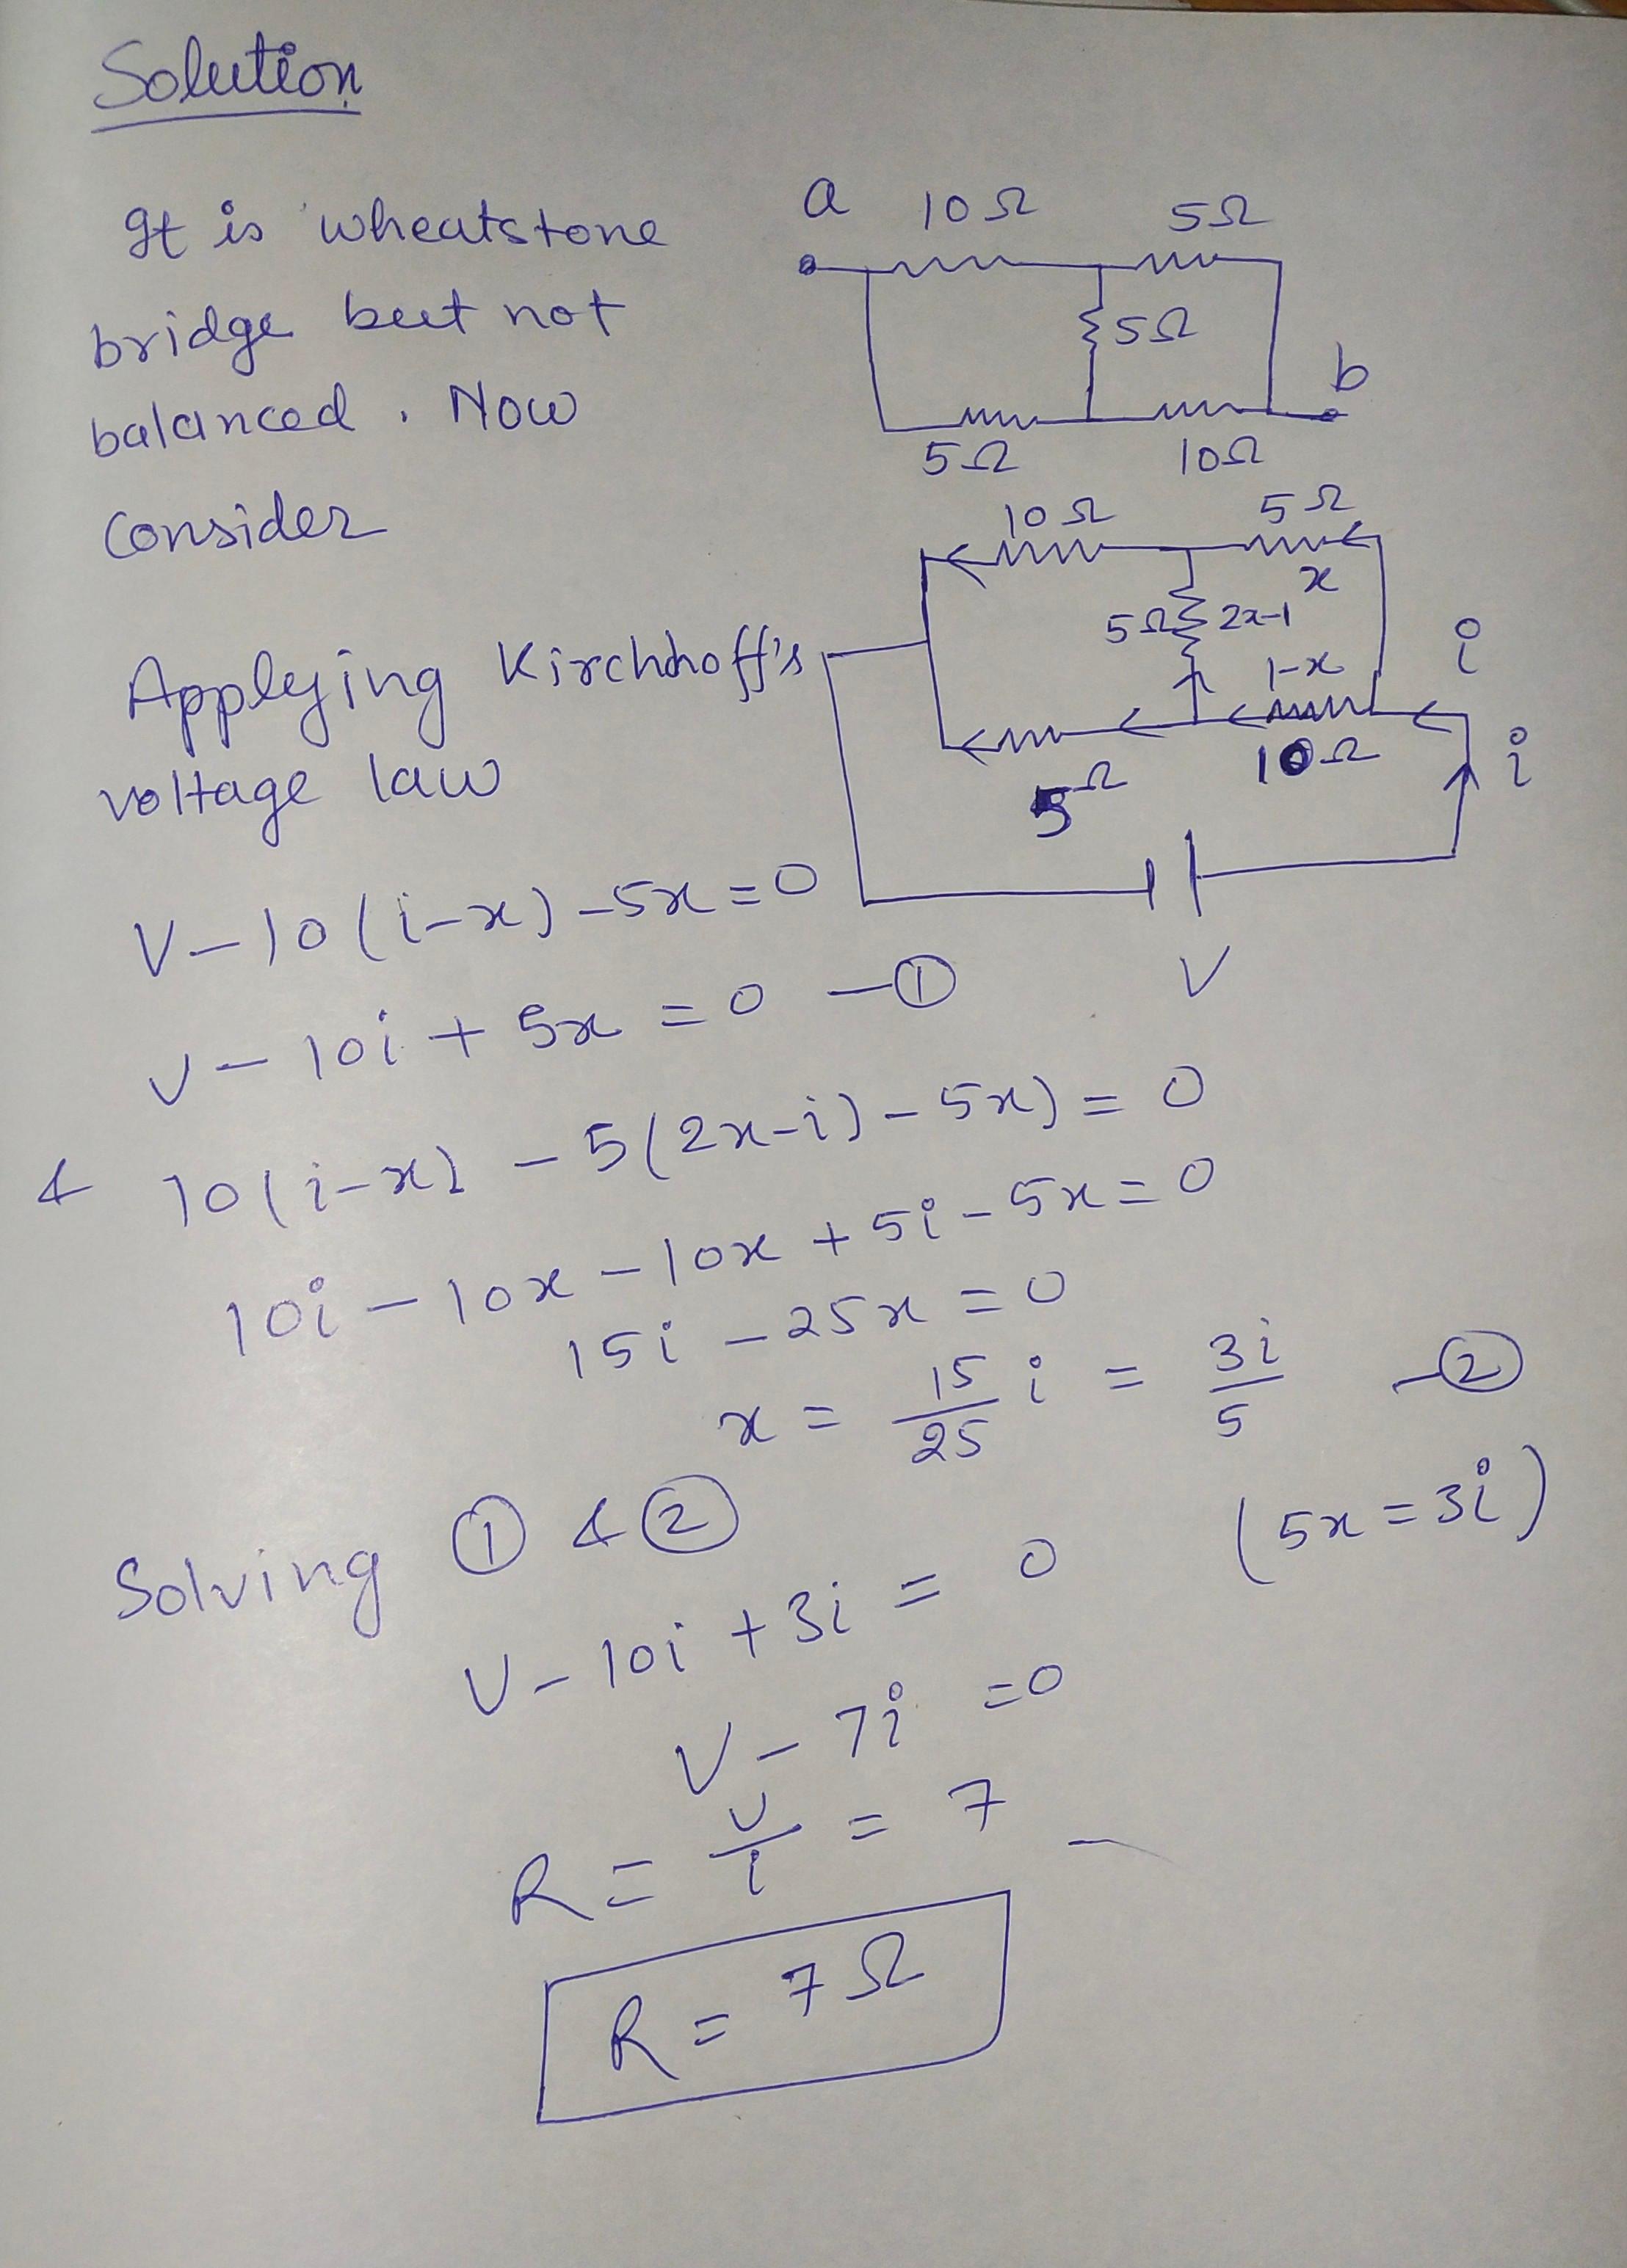 Solution
It is wheatstone
bridge but not
balanced. Now
Consider
a 10Ω 5Ω
5Ω
b
5Ω 10Ω
10Ω 5Ω
x
5Ω 2x-i
i-x i
5Ω 10Ω i
V
Applying Kirchhoff's
voltage law
V-10(i-x)-5x=0
V-10i+5x=0 -①
& 10(i-x)-5(2x-i)-5x)=0
10i-10x-10x+5i-5x=0
15i-25x=0
x = 15/25 i = 3i/5 -②
Solving ① & ② (5x=3i)
V-10i+3i=0
V-7i=0
R = V/i = 7
R = 7Ω